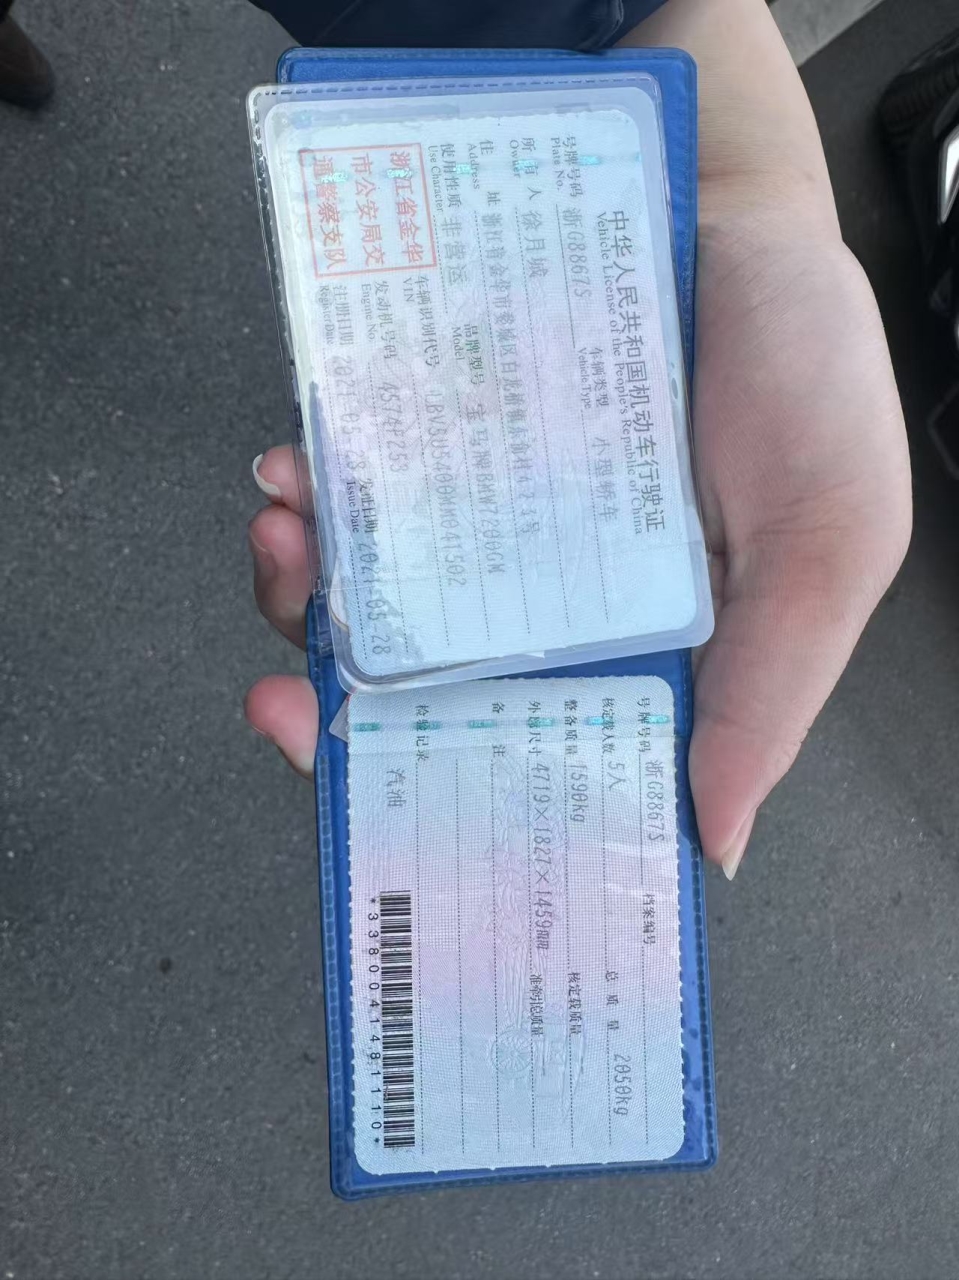 中华人民共和国机动车行驶证
Vehicle License of the People's Republic of China
号牌号码 浙G8867S 车辆类型 小型轿车
Plate No. Vehicle Type
所有人 徐月城
Owner
住址 浙江省金华市婺城区白龙桥镇东俞村
Address
使用性质 非营运 品牌型号 宝马牌BMW7200GM
Use Character Model
浙江省金华
市公安局交
通警察支队
车辆识别代号
VIN
发动机号码 4574F253
Engine No.
注册日期 2021-05-28 发证日期 2021-05-28
Register Date Issue Date
号牌号码 浙G8867S 档案编号
核定载人数 5人 总质量 2050kg
整备质量 1590kg 核定载质量
外廓尺寸 4719×1827×1459mm 准牵引总质量
备注
检验记录
汽油
*3380041481110*